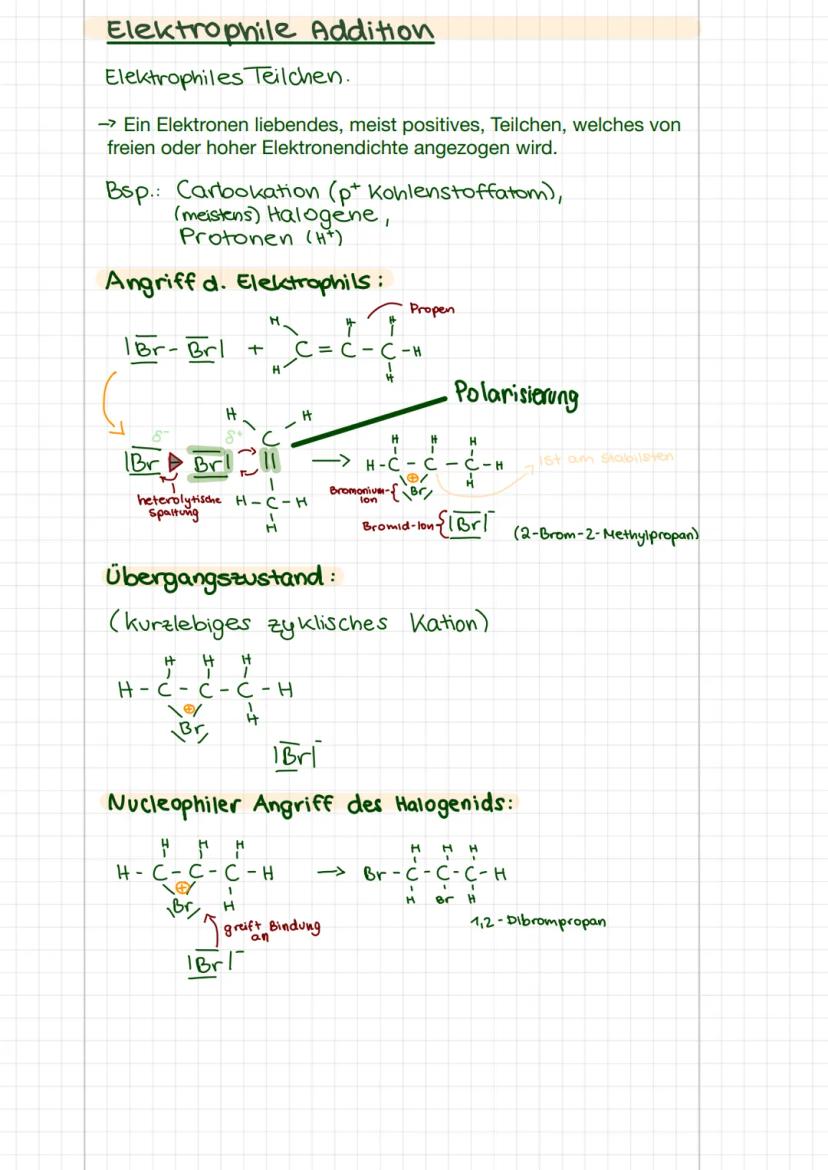 Elektrophile Addition
Elektrophiles Teilchen.
→ Ein Elektronen liebendes, meist positives, Teilchen, welches von
freien oder hoher Elektronendichte angezogen wird.
Bsp.: Carbokation (p⁺ Kohlenstoffatom),
(meistens) Halogene,
Protonen (H⁺)
Angriff d. Elektrophils:
Propen
H H H
|Br - Br| + C = C - C - H
H H
Polarisierung
H H
δ⁻ δ⁺ C H H H
|Br Br| || → H - C - C - C - H ist am stabilsten
⊕ H
heterolytische H - C - H Bromonium- { Br
spaltung Ion
H Bromid-Ion { |Br|⁻ (2-Brom-2-Methylpropan)
Übergangszustand:
(kurzlebiges zyklisches Kation)
H H H
H - C - C - C - H
⊕ H
Br
|Br|⁻
Nucleophiler Angriff des Halogenids:
H H H H H H
H - C - C - C - H → Br - C - C - C - H
⊕ H H Br H
Br
greift Bindung 1,2-Dibrompropan
an
|Br|⁻